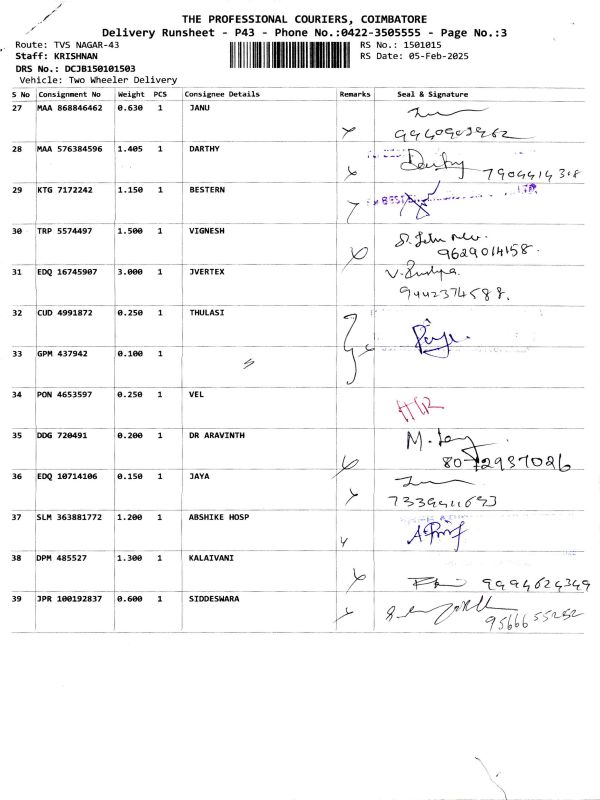 THE PROFESSIONAL COURIERS, COIMBATORE
Delivery Runsheet - P43 - Phone No.:0422-3505555 - Page No.:3
Route: TVS NAGAR-43 RS No.: 1501015
Staff: KRISHNAN RS Date: 05-Feb-2025
DRS No.: DCJB150101503
Vehicle: Two Wheeler Delivery
S No Consignment No Weight PCS Consignee Details Remarks Seal & Signature
27 MAA 868846462 0.630 1 JANU
28 MAA 576384596 1.405 1 DARTHY
Darthy
29 KTG 7172242 1.150 1 BESTERN
30 TRP 5574497 1.500 1 VIGNESH
9629014158.
31 EDQ 16745907 3.000 1 JVERTEX
9442374588.
32 CUD 4991872 0.250 1 THULASI
33 GPM 437942 0.100 1 〃
34 PON 4653597 0.250 1 VEL
35 DDG 720491 0.200 1 DR ARAVINTH
8072937026
36 EDQ 10714106 0.150 1 JAYA
37 SLM 363881772 1.200 1 ABSHIKE HOSP
38 DPM 485527 1.300 1 KALAIVANI
9994624349
39 JPR 100192837 0.600 1 SIDDESWARA
9566655252